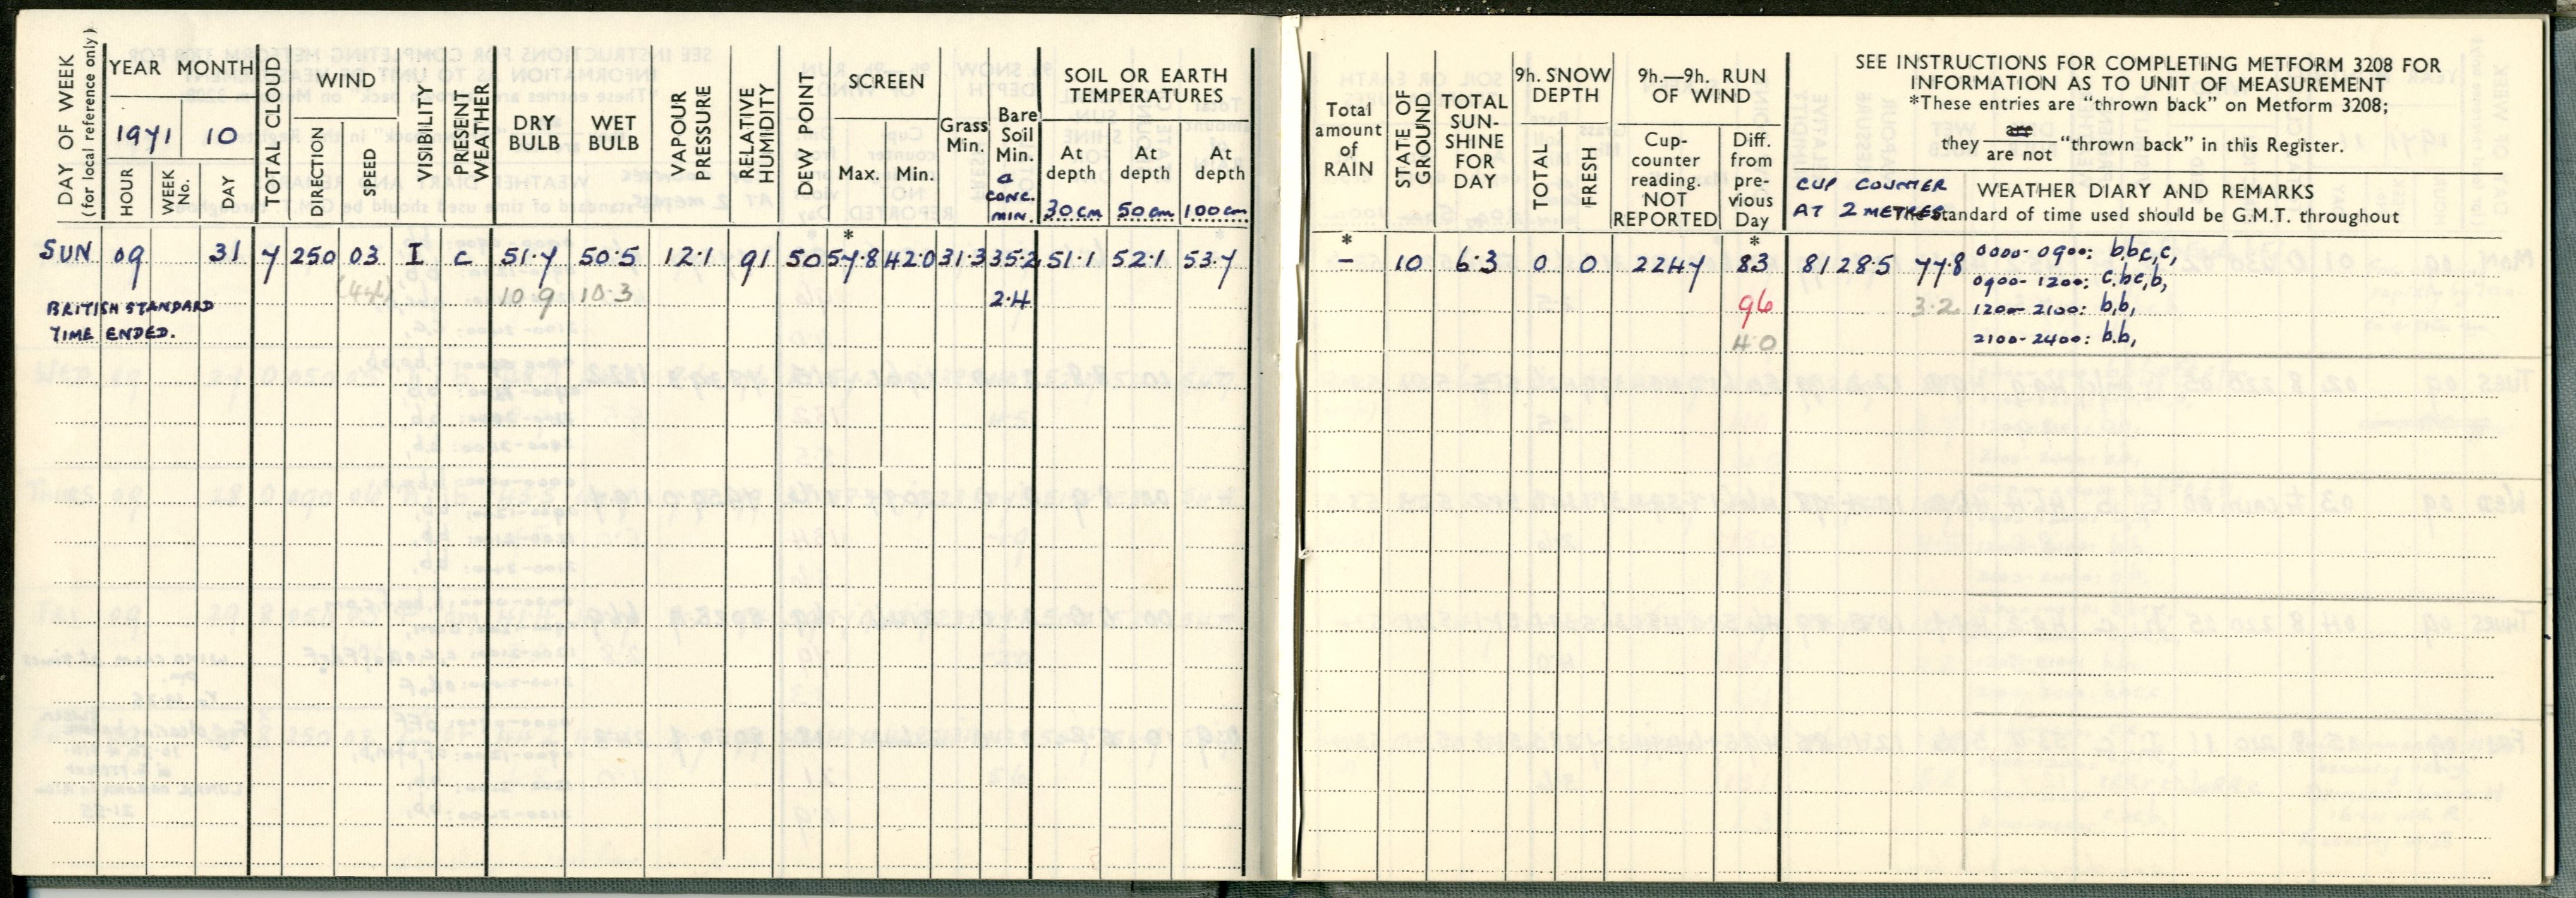 DAY OF WEEK
(for local reference only)
YEAR MONTH
1971 10
HOUR
WEEK No.
DAY
TOTAL CLOUD
WIND
DIRECTION
SPEED
VISIBILITY
PRESENT WEATHER
DRY BULB
WET BULB
VAPOUR PRESSURE
RELATIVE HUMIDITY
DEW POINT
SCREEN
Max. Min.
Grass Min.
Bare Soil Min.
a
CONC. MIN.
SOIL OR EARTH
TEMPERATURES
At depth 30 cm
At depth 50 cm
At depth 100 cm
SUN 09 31 7 250 03 I c 51.7 50.5 12.1 91 50 57.8* 42.0 31.3 35.2 51.1 52.1 53.7
(44) 10.9 10.3 2.4
BRITISH STANDARD
TIME ENDED.
Total amount of RAIN
STATE OF GROUND
TOTAL SUN-SHINE FOR DAY
9h. SNOW DEPTH
TOTAL
FRESH
9h.—9h. RUN OF WIND
Cup-counter reading. NOT REPORTED
Diff. from pre-vious Day
SEE INSTRUCTIONS FOR COMPLETING METFORM 3208 FOR
INFORMATION AS TO UNIT OF MEASUREMENT
*These entries are "thrown back" on Metform 3208;
they are / are not "thrown back" in this Register.
CUP COUNTER
AT 2 METRES
WEATHER DIARY AND REMARKS
The standard of time used should be G.M.T. throughout
* - 10 6.3 0 0 2247 * 83 81285 77.8 0000-0900: bbc,c,
0900-1200: c,bc,b,
96 3.2 1200-2100: b,b,
40 2100-2400: b.b,